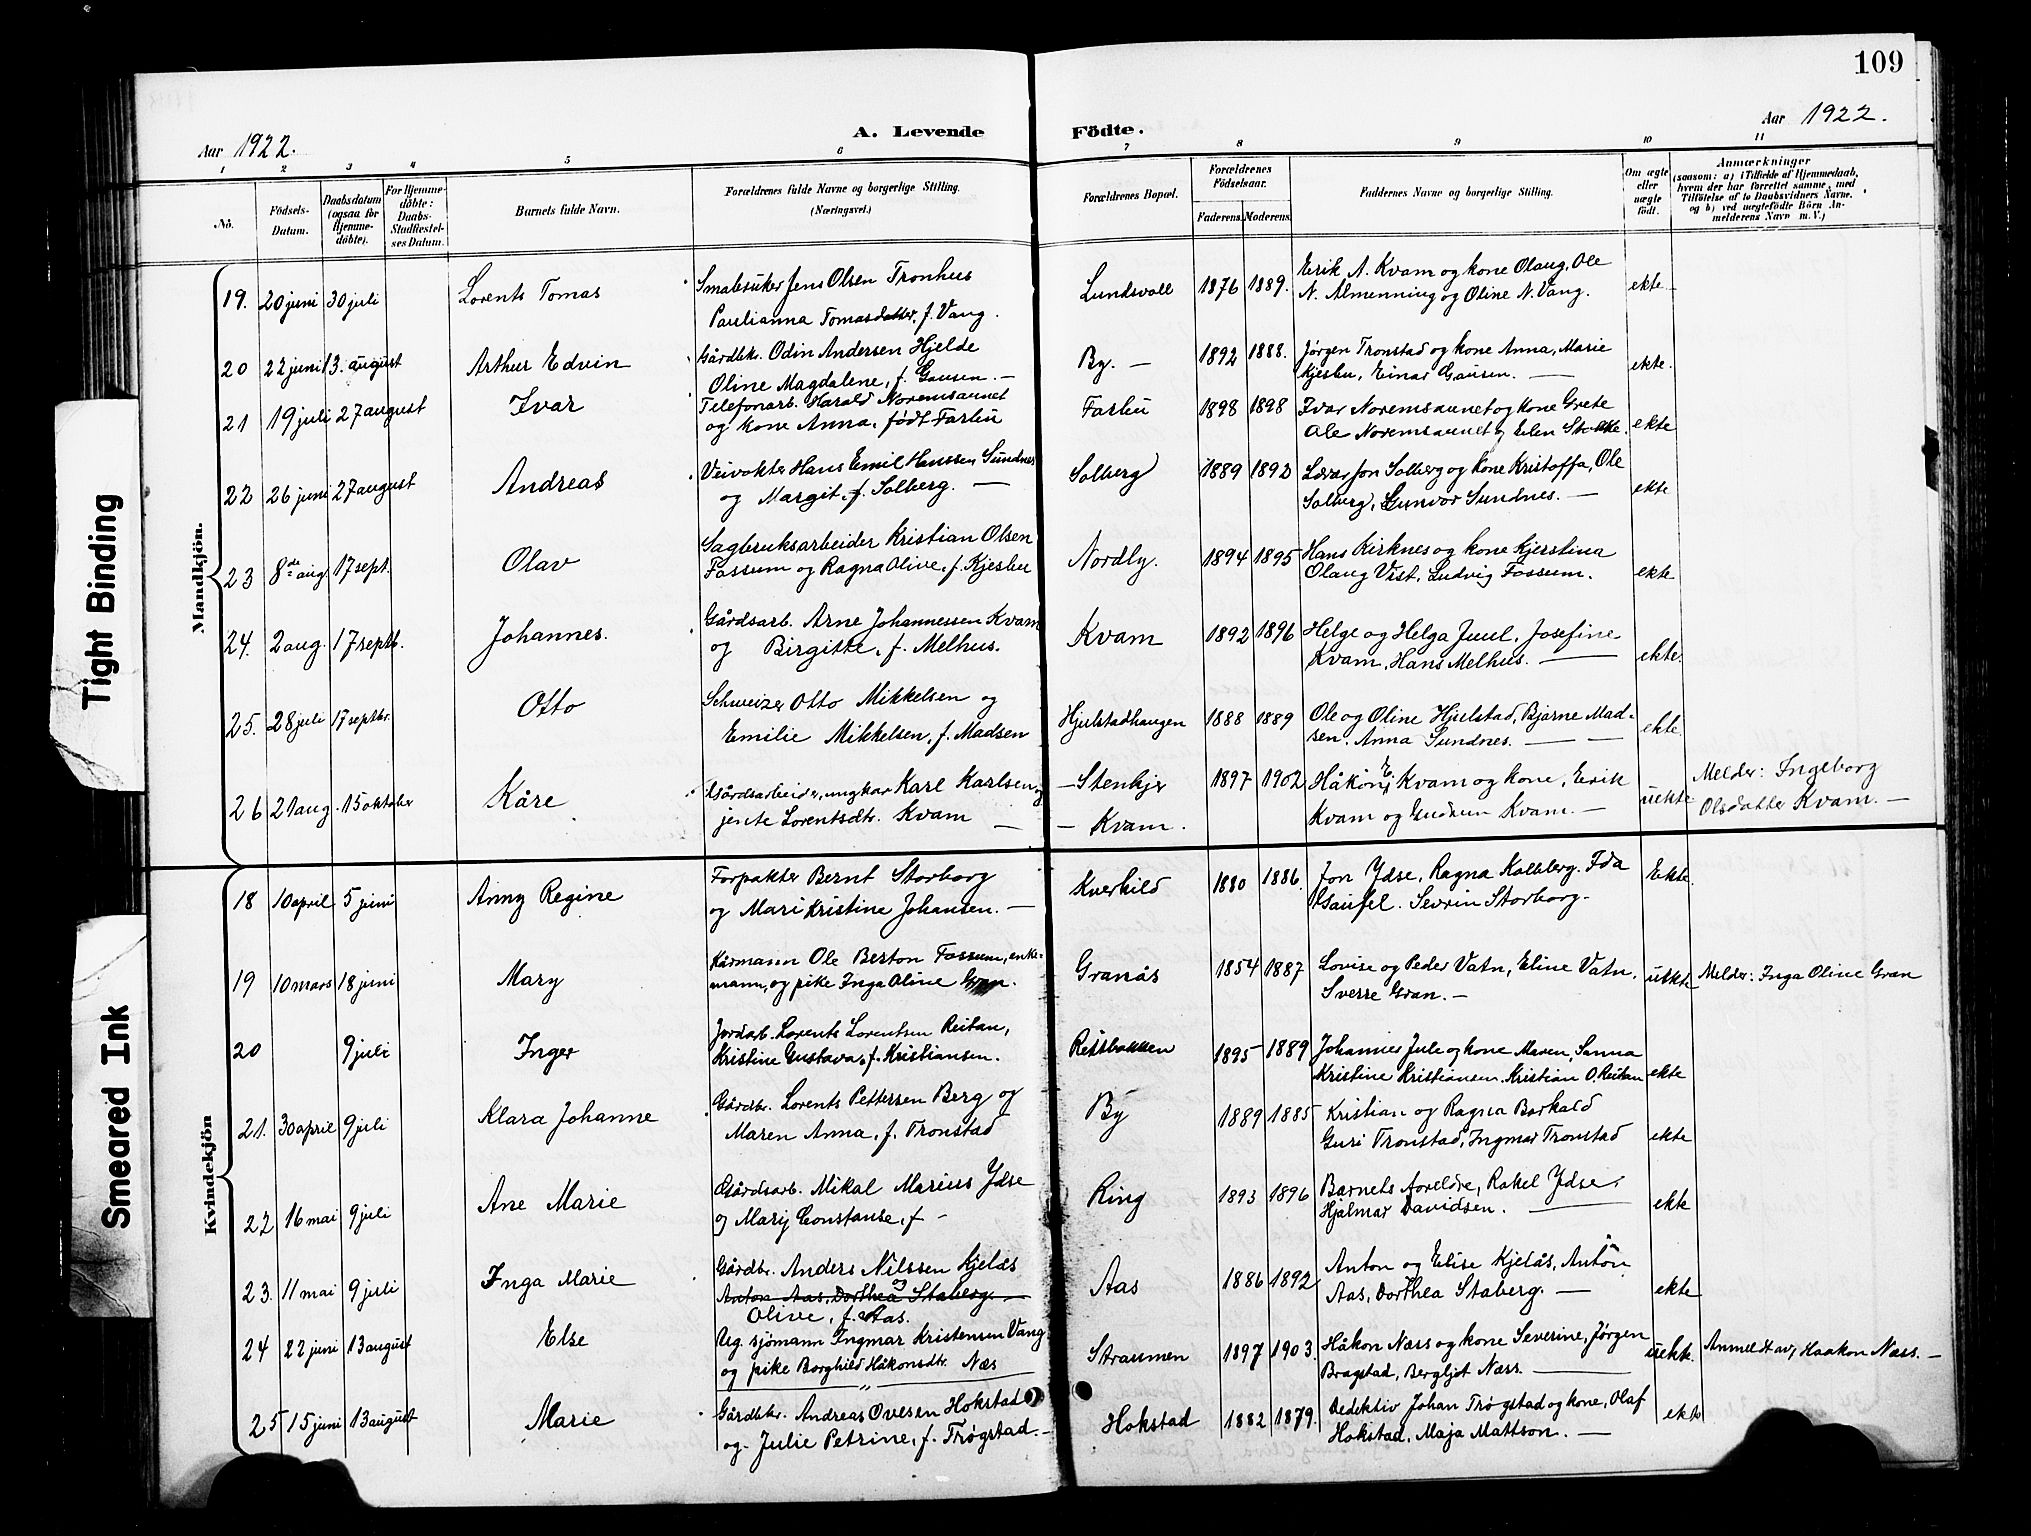 109
Aar 1922.
A. Levende Födte.
Aar 1922.
1 2 3 4 5 6 7 8 9 10 11
No.
Födsels-Datum.
Daabsdatum (ogsaa for Hjemmedöbte).
For Hjemmedöbte: Daabs-Stadfæstelses Datum.
Barnets fulde Navn.
Forældrenes fulde Navne og borgerlige Stilling.
(Næringsvei.)
Forældrenes Bopæl.
Forældrenes Födselsaar.
Faderens. Moderens.
Faddernes Navne og borgerlige Stilling.
Om ægte eller uægte födt.
Anmærkninger
(saasom: a) i Tilfælde af Hjemmedaab,
hvem der har forrettet samme, med
Tilföielse af to Daabsvidners Navne.
og b) ved uægtefödte Börn Anmelderens Navn m. V.)
Mandkjön.
19. 20 juni 30 juli Lorents Tomas Småbruker Jens Olsen Tronhus Lundsvoll 1876 1889. Erik A. Kvam og kone Olaug, Ole ekte
Paulianna Tomasdatter, f. Vang. N. Almenning og Oline N. Vang.
20 22 juni 13. august Arthur Edvin Gårdbr. Odin Andersen Hjelde By. — 1892 1888. Jørgen Tronstad og kone Anna, Marie ekte.
Oline Magdalene, f. Gausen. — Kjesbu, Einar Gausen. —
21 19 juli 27 august Ivar Telefonarb. Harald Noremsaunet Farbu 1898 1898 Ivar Noremsaunet og kone Grete ekte
og kone Anna, født Farbu Ole Noremsaunet og Elen
22 26 juni 27 august Andreas Veivokter Hans Emil Hanssen Sundnes Solberg 1889 1892 Lærer Jon Solberg og kone Kristoffa, Ole ekte
og Margit, f. Solberg. — Solberg, Gunvor Sundnes. —
23 8de aug. 17 sept. Olav Sagbruksarbeider Kristian Olsen Nordly. 1894 1895 Hans Kirknes og kone Kjerstina ekte
Fossum og Ragna Olive, f. Kjesbu Olaug Vist, Ludvig Fossum.
24. 2 aug. 17 septb. Johannes. Gårdsarb. Arne Johannessen Kvam Kvam 1892 1896 Helge og Helga Juul, Josefine ekte.
og Birgitte, f. Melhus. Kvam, Hans Melhus. —
25. 28 juli 17 septbr. Otto Schweizer Otto Mikkelsen og Hjulstadhaugen 1888 1889 Ole og Oline Hjulstad, Bjarne Mad- ekte
Emilie Mikkelsen, f. Madsen sen, Anna Sundnes. — —
26 21 aug. 15 oktober Kåre Gårdsarbeider, ungkar Karl Karlsen og — Stenkjer 1897 1902 Håkon E. Kvam og kone, Erik uekte Melder: Ingeborg
jente Lorentsdtr. Kvam — — Kvam. Kvam og Gudrun Kvam. — Olsdatter Kvam. —
Kvindekjön
18 10 april 5 juni Anny Regine Forpakter Bernt Storborg Kverkild 1880 1886. Jon Ydse, Ragna Kolberg. Ida Ekte.
og Mari Kristine Johansen. — Gaupel. Sevrin Storborg.
19 10 mars 18 juni Mary Kårmann Ole Berton Fossum, enke- Granås 1854 1887 Lovise og Peder Vatn, Eline Vatn, uekte Melder: Inga Oline Gran
mann, og pike Inga Oline Gran. Sverre Gran. —
20 9 juli Inger Jordarb. Lorents Lorentsen Reitan, Reitbakken 1895 1889 Johannes Jule og kone Maren, Sanna ekte
Kristine Gustava, f. Kristiansen. Kristine Kristiansen. Kristian O. Reitan
21. 30 april 9 juli Klara Johanne Gårdbr. Lorents Pettersen Berg og By 1889 1885 Kristian og Ragna Barkald ekte
Maren Anna, f. Tronstad Guri Tronstad, Ingmar Tronstad
22 16 mai 9 juli Ane Marie Gårdsarb. Mikal Marius Ydse Ring 1893 1896 Barnets foreldre, Rakel Ydse, ekte
og Mary Constanse, f — Hjalmar Davidsen. —
23. 11 mai 9 juli Inga Marie Gårdbr. Anders Nilssen Kjelås Aas 1886 1892 Anton og Elise Kjelås, Anton ekte
Anton Aas, Dorthea Staberg. — og Aas, Dorthea Staberg. —
Olive, f. Aas.
24 22 juni 13 august Else Ug. sjømann Ingmar Kristensen Vang Straumen 1897 1903. Håkon Næss og kone Severine, Jørgen uekte. Anmeldt av, Haakon Næss. —
og pike Borghild Håkonsdtr. Næs Bragstad, Bergljot Næss.
25 15 juni 13 august Marie Gårdbr. Andreas Ovesen Hokstad Hokstad 1882 1879. Dedektiv Johan Trøgstad og kone, Olaf ekte
og Julie Petrine, f. Trøgstad. — Hokstad, Maja Mattson. —
Tight Binding
Smeared Ink